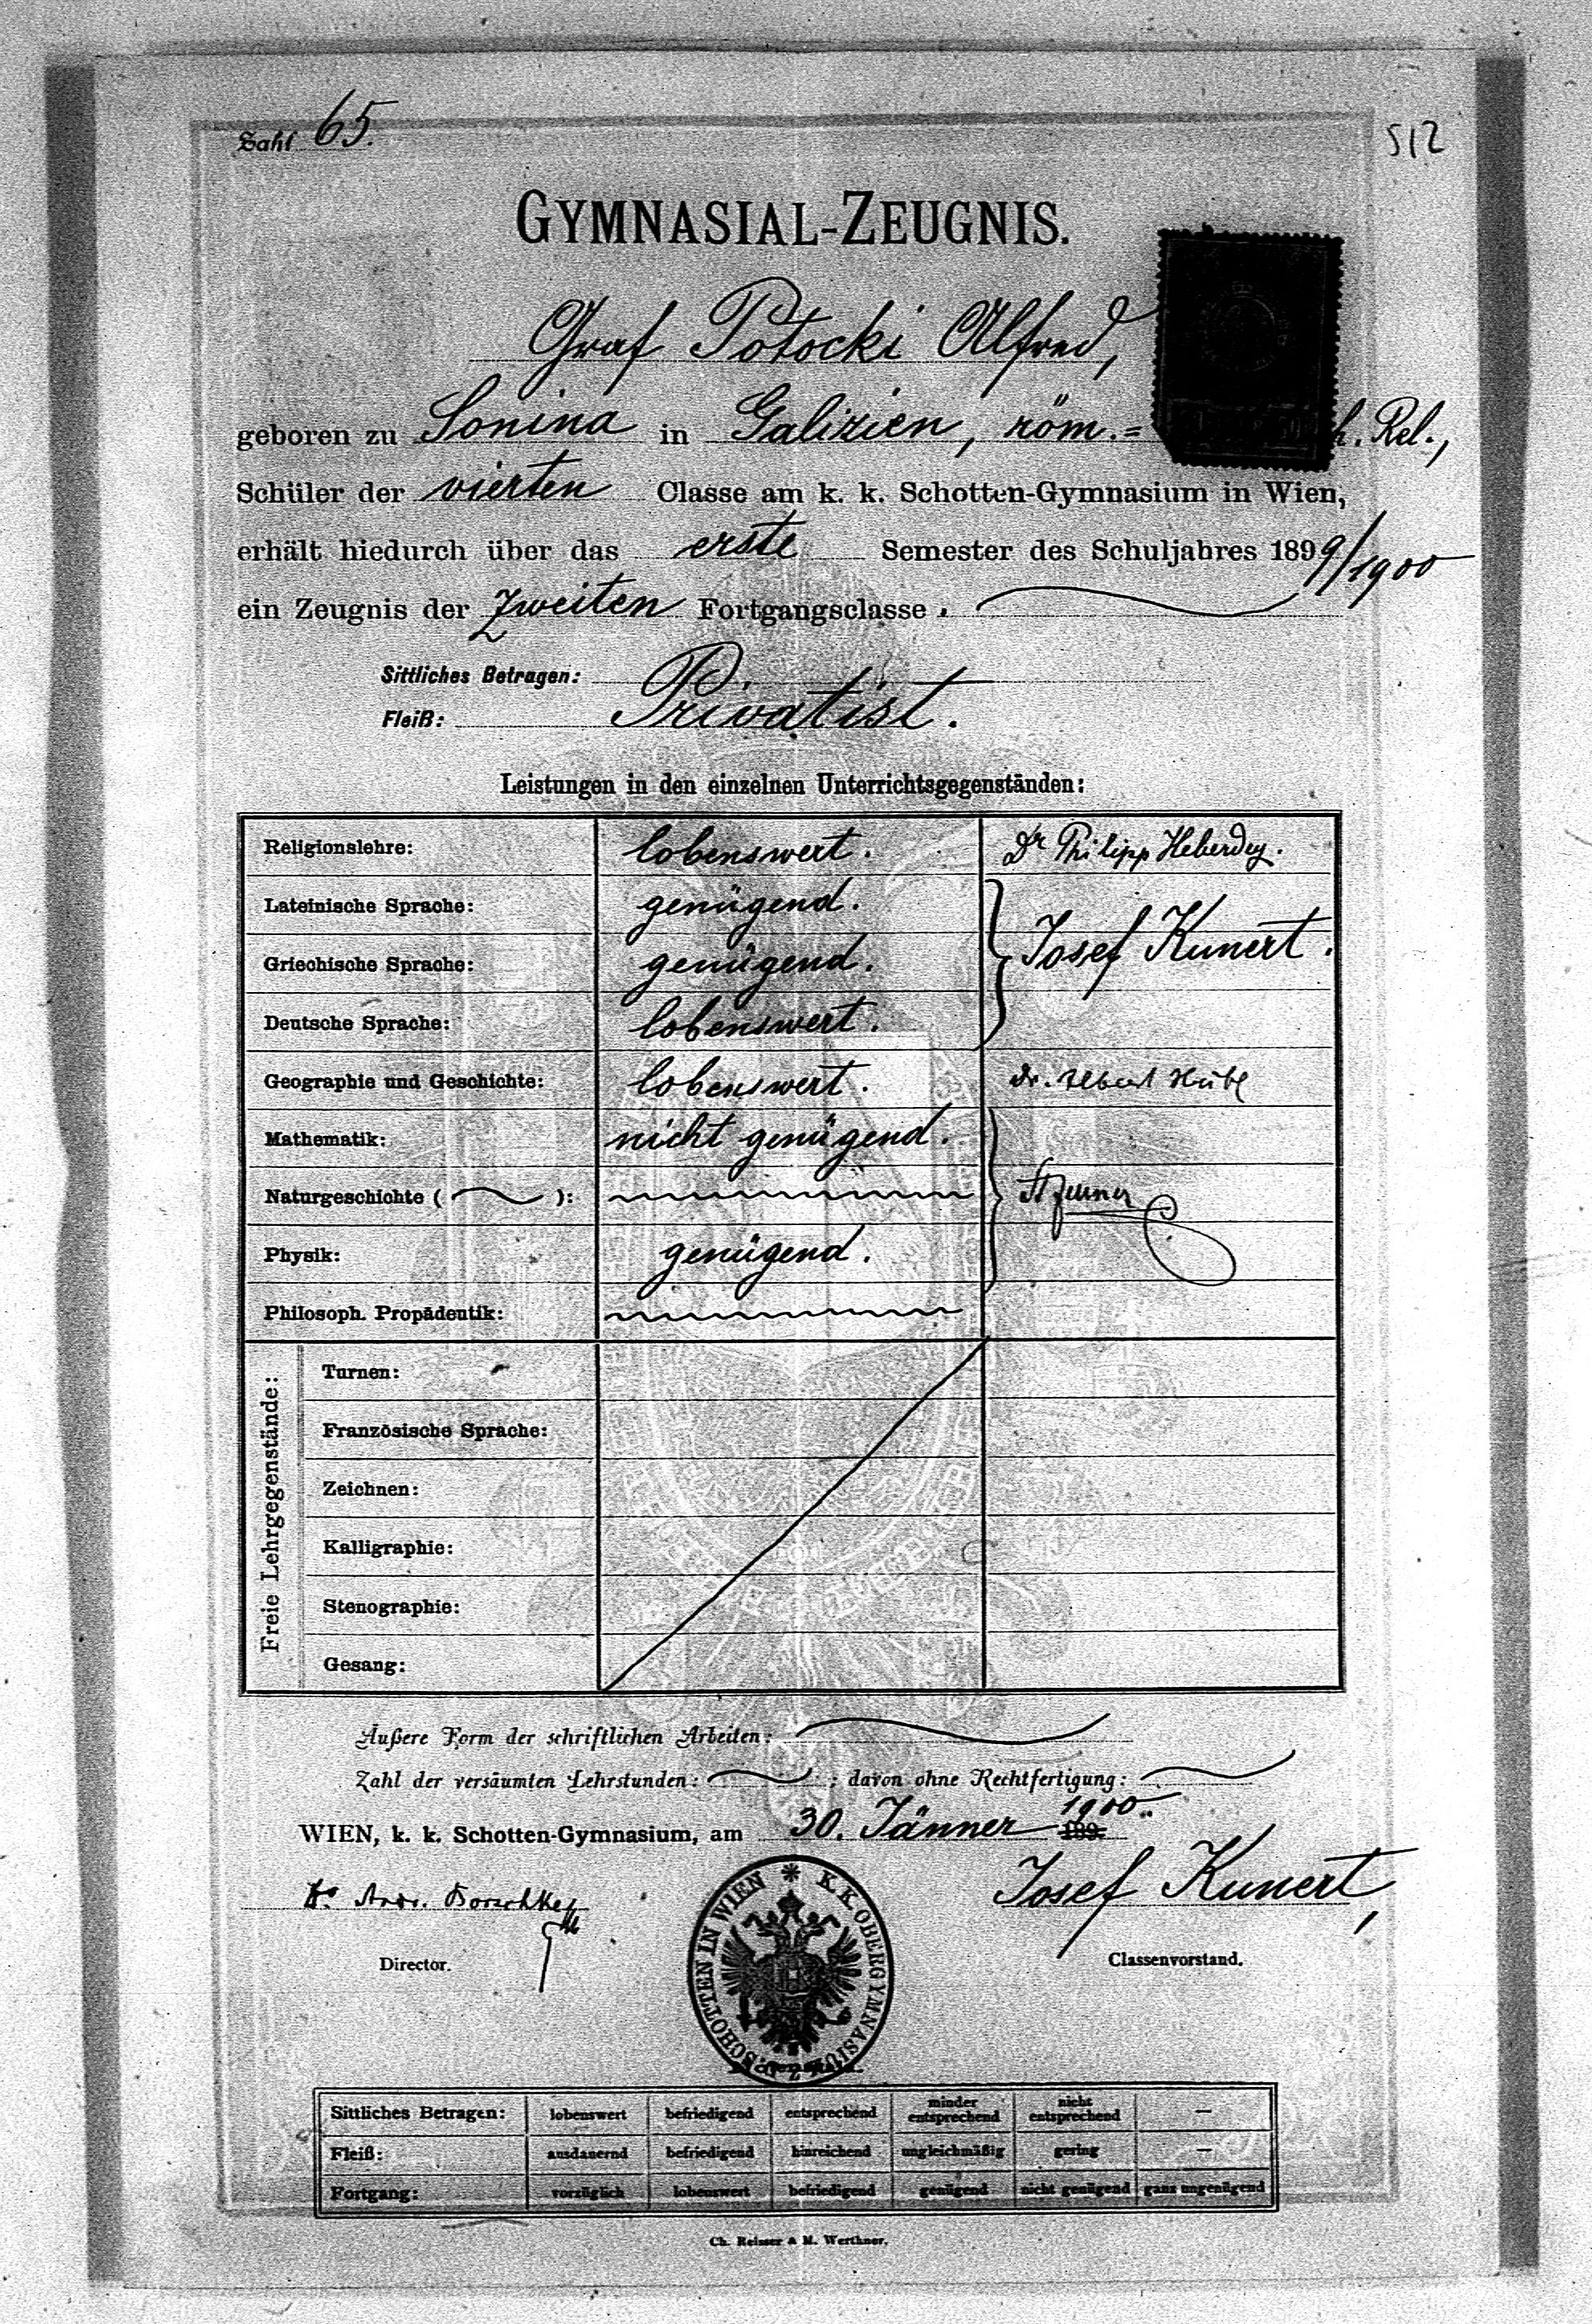 Zahl 65.
512
GYMNASIAL-ZEUGNIS.
Graf Potocki Alfred,
geboren zu Sonina in Galizien, röm.= h. Rel.,
Schüler der vierten Classe am k. k. Schotten-Gymnasium in Wien,
erhält hiedurch über das erste Semester des Schuljahres 1899/1900
ein Zeugnis der zweiten Fortgangsclasse.
Sittliches Betragen:
Fleiß: Privatist.
Leistungen in den einzelnen Unterrichtsgegenständen:
Religionslehre: lobenswert. Dr Philipp Heberdey.
Lateinische Sprache: genügend.
Griechische Sprache: genügend. Josef Kunert.
Deutsche Sprache: lobenswert.
Geographie und Geschichte: lobenswert. Dr. Albert Hübl
Mathematik: nicht genügend.
Naturgeschichte ( ):
Physik: genügend.
Philosoph. Propädeutik:
Freie Lehrgegenstände:
Turnen:
Französische Sprache:
Zeichnen:
Kalligraphie:
Stenographie:
Gesang:
Äußere Form der schriftlichen Arbeiten:
Zahl der versäumten Lehrstunden: ; davon ohne Rechtfertigung:
WIEN, k. k. Schotten-Gymnasium, am 30. Jänner 1900. 189
Dr. Andr. Borschke Josef Kunert,
Director. Classenvorstand.
K. K. OBERGYMNASIUM Z. D. SCHOTTEN IN WIEN
Sittliches Betragen: lobenswert befriedigend entsprechend minder entsprechend nicht entsprechend —
Fleiß: ausdauernd befriedigend hinreichend ungleichmäßig gering —
Fortgang: vorzüglich lobenswert befriedigend genügend nicht genügend ganz ungenügend
Ch. Reisser & M. Werthner.